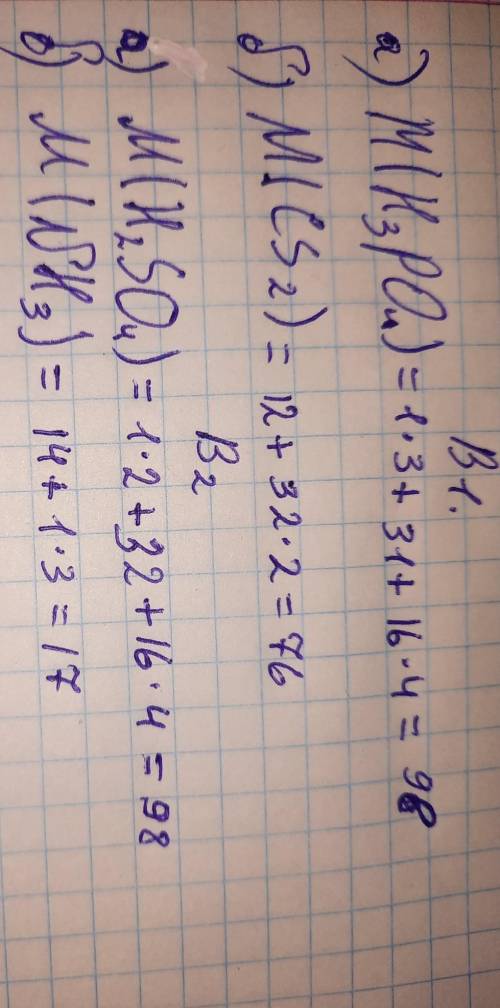 В1.
а) M(H₃PO₄) = 1·3 + 31 + 16·4 = 98
б) M(CS₂) = 12 + 32·2 = 76
В2
а) M(H₂SO₄) = 1·2 + 32 + 16·4 = 98
б) M(NH₃) = 14 + 1·3 = 17